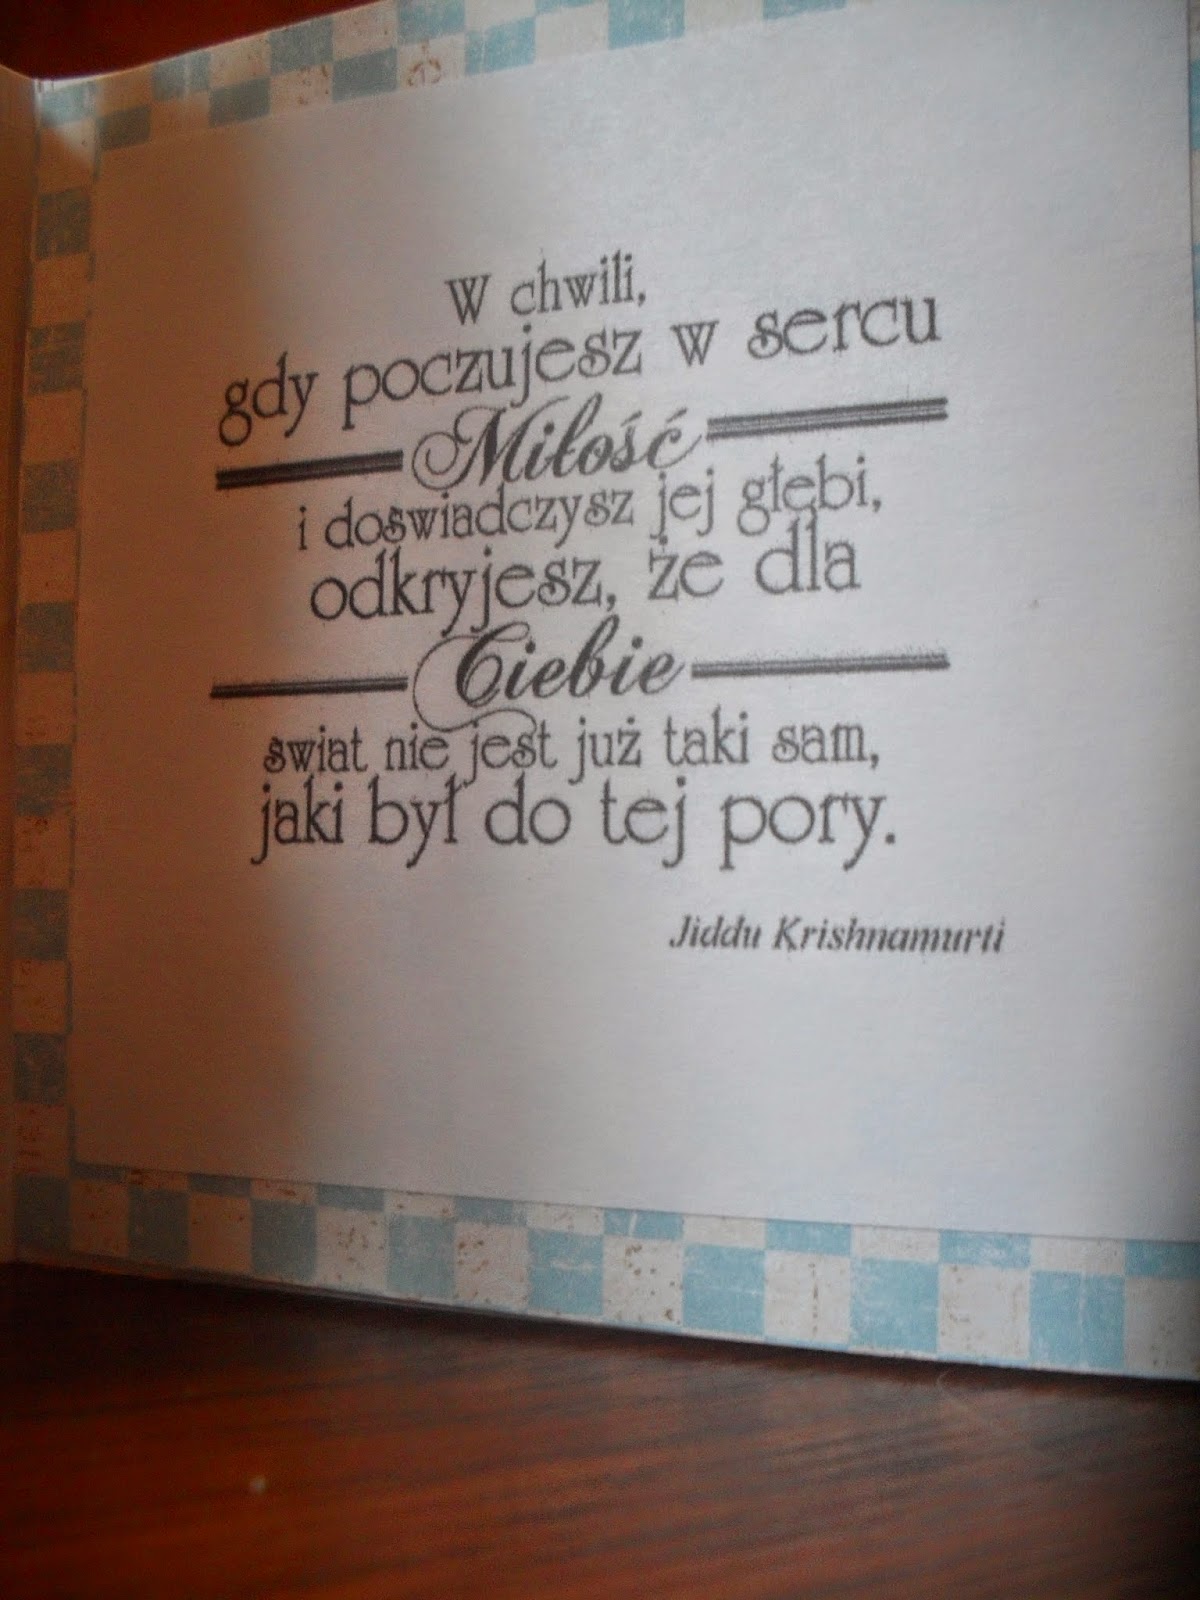 W chwili,
gdy poczujesz w sercu
Miłość
i doswiadczysz jej głębi,
odkryjesz, że dla
Ciebie
swiat nie jest już taki sam,
jaki był do tej pory.
Jiddu Krishnamurti